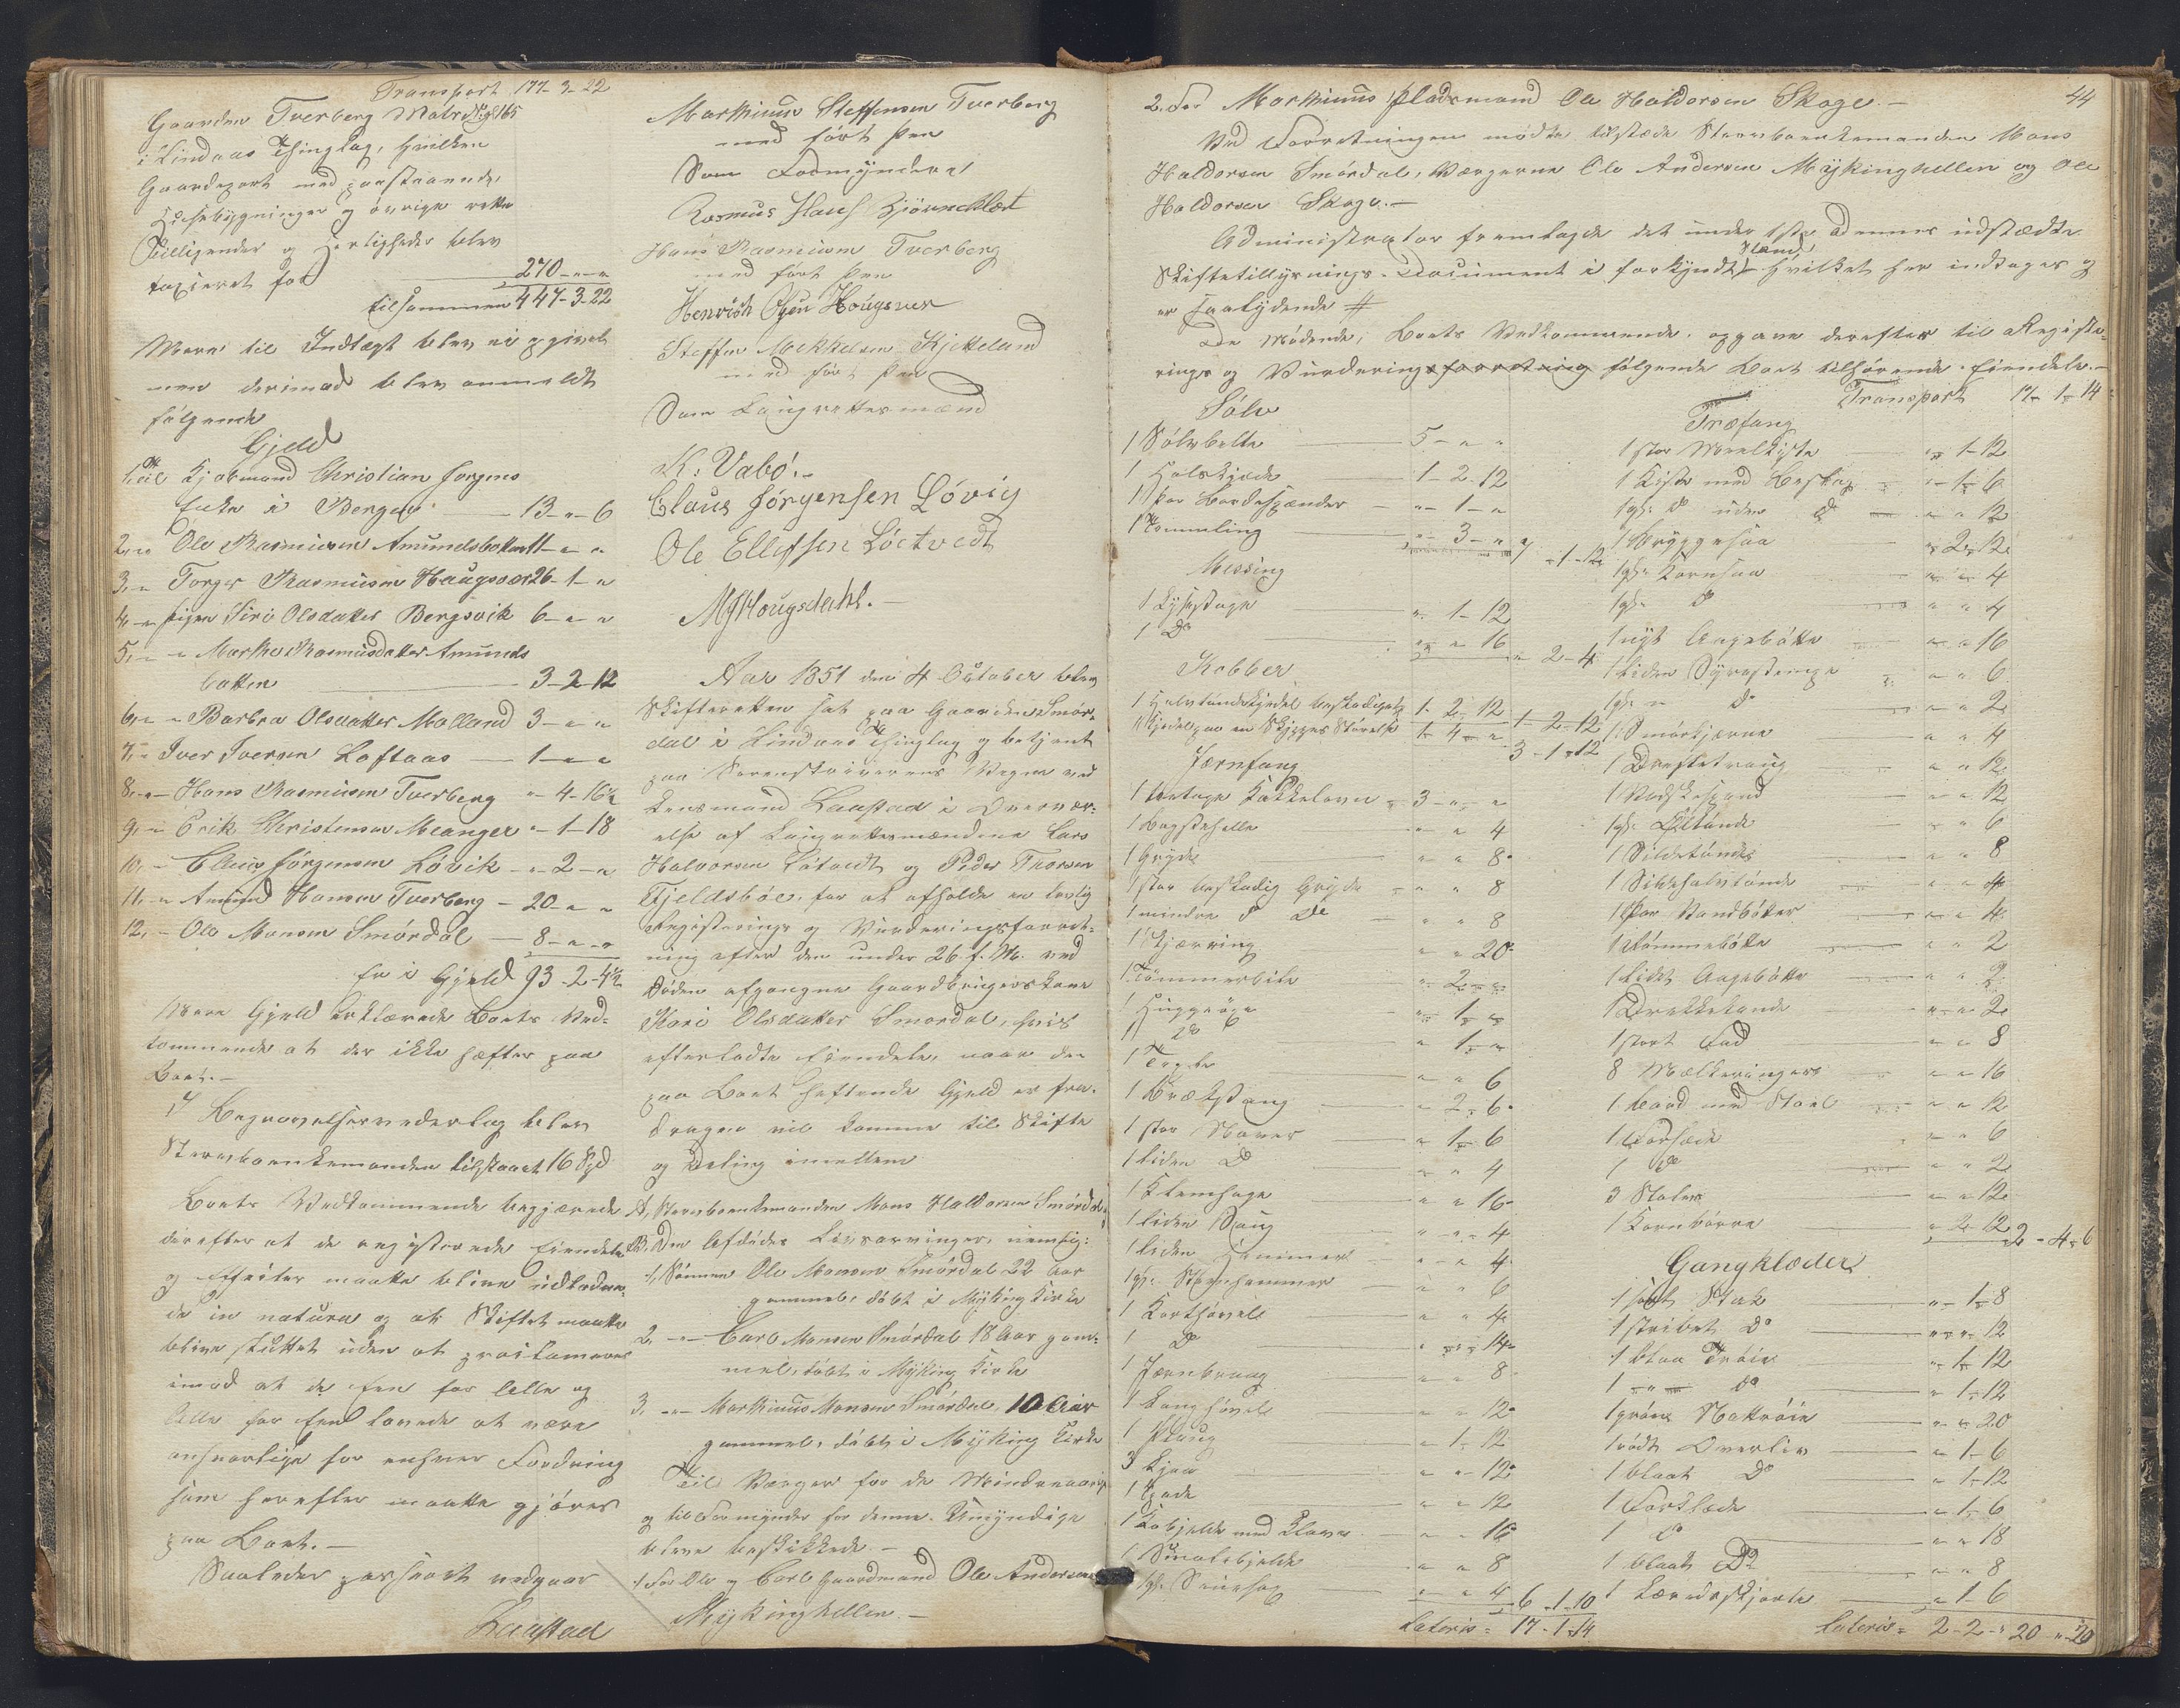 Transport 177-3-22
Gaarden Tverberg Matr No 165
i Lindaas Thinglag, hvilken
Gaardepart med paastaaende
Huusebygninger og øvrige rette
Tilliggender og Herligheder blev
taxeret for 270 - " - "
tilsammen 447-3-22
Mere til Indtægt blev ei opgivet
men derimod blev anmeldt
følgende
Gjeld
1, Til Kjøbmand Christian Jørgens
i Bergen 13 - " - 6
2, " Ole Rasmusen Amundsbotten 11 - " - "
3, " Torger Rasmusen Haugsvær 26 - 1 - "
4, " Pigen Siri Olsdatter Bergsvik 6 - " - "
5, " " Marthe Rasmusdatter Amunds
botten 3-2-12
6, " " Barbra Olsdatter Molland 3 - " - "
7, " Iver Iversen Loftaas 1 - " - "
8, " Hans Rasmusen Tverberg " - 4 - 16½
9, " Erik Christensen Meanger " - 1 - 18
10, " Claus Jørgensen Løvik " - 2 - "
11, " Amund Hansen Tverberg 20 - " - "
12, " Ole Monsen Smørdal 8 - " - "
Er i Gjeld 93-2-4½
Mere Gjeld erklærede Boets Ved-
kommende at der ikke hæfter paa
Boet. -
I Begravelsesvederlag blev
Stervboenkemanden tilstaaet 16 Spd
Boets Vedkommende begjærede
derefter at de registrerede Eiendele
og Effecter maatte blive udlodde-
de in natura og at Skiftet maatte
blive sluttet uden at proclameres
imod at de Een for Alle og
Alle for Een lovede at være
ansvarlige for enhver Fordring
som herefter maatte gjøres
paa Boet. -
Saaledes passeert vedgaar
Laastad
Marthinus Steffensen Tverberg
med ført Pen
Som Formyndere
Rasmus Hans Bjørneklæt
Hans Rasmusen Tverberg
med ført Pen
Henrich Olsen Hougsvær
Steffen Mikkelsen Kjetteland
med ført Pen
Som Laugrettesmænd
K: Vabø. -
Claus Jørgensen Løvig
Ole Ellefsen Løetvedt
MJHougsdahl. -
Aar 1851 den 4 October blev
Skifteretten sat paa Gaarden Smør-
dal i Lindaas Thinglag og betjent
paa Sorenskriverens Vegne ved
Lensmand Laastad i Overvær-
else af Laugrettesmændene Lars
Halvorsen Løtvedt og Peder Thorsen
Fjeldsbøe, for at afholde en lovlig
Registrerings og Vurderingsforret-
ning efter den under 26 f. M. ved
Døden afgangne Gaardbrugerskone
Kari Olsdatter Smørdal, hvis
efterladte Eiendele, naar den
paa Boet heftende Gjeld er fra-
dragen vil komme til Skifte
og Deling imellem
A, Stervboenkemanden Mons Haldorsen Smørdal
B, Den Afdødes Livsarvinger, nemlig:
1, Sønnen Ole Monsen Smørdal 22 Aar
gammel, døbt i Myking Kirke
2, " - Carl Monsen Smørdal 18 Aar gam-
mel, døbt i Myking Kirke
3, " - Marthinus Monsen Smørdal, 10 Aar
gammel, døbt i Myking Kirke
Til Værger for de Mindreaarige
og til Formynder for denne Umyndige
bleve beskikkede. -
1 For Ole og Carl Gaardmand Ole Andersen
Mykinghellen -
44
2. For Marthinus, Pladsmand Ole Haldorsen Skage. -
Ved Forretningen mødte tilstæde Stervboenkemanden Mons
Haldorsen Smørdal, Værgerne Ole Andersen Mykinghellen og Ole
Haldorsen Skage. -
Administrator fremlagde det under 1ste dennes udstædte
Skiftetillysnings-Document i forkyndt Stand, hvilket her indtages og
er saalydende #
De Mødende, Boets Vedkommende opgave derefter til Registre-
rings og Vurderingsforretning følgende Boet tilhørende Eiendele. -
Sølv
1 Sølvbelte 5 - " - "
1 Halskjede 1-2-12
1 Par Bordespænder " - 1 - "
1 Tummling " - 3 - " 7 - 1 - 12
Messing
1 Lysestage " - 1 - 12
1 Do " - " - 16 " - 2 - 4
Kobber
1 Halvtøndekjedel beskadiget 1-2-12
1 Kjedel paa en Skjeppes Størrelse 1-4-" 1 - 2 - 12
3 - 1 - 12
Jernfang
1 toetages Kakkelovn 3 - " - "
1 Bagstehelle " " 4
1 Gryde " " 8
1 stor beskadig Gryde " " 8
1 mindre do Do " " 8
1 Skjærring " " 20
1 Tømmerbile " - 2 - "
1 Huggeøxe " - 1 - "
1 Do " - 1 - "
1 Texle " " 6
1 Brækstang " - 2 - 6
1 stor Naver " - 1 - 6
1 liden Do " " 4
1 Klemhage " " 16
1 liden Saug " " 4
1 liden Hammer " " 4
1 gl: Steenhammer " " 6
1 Korthøvel " " 4
1 Do " " 14
1 Jernbraag " " 8
1 Langhøvel " " 12
1 Plaug " - 1 - 12
3 Ljaa " " 12
1 Spade " " 12
1 Kobjelde med Klave " " 16
1 Smalebjelde " " 8
1 gl: " " 4 6 - 1 - 10
Lateris = 17 - 1 - 14
Transport 17 - 1 - 14
Træfang
1 stor Meelkiste " - 1 - 12
1 Kiste med Beslag " - 1 - 6
1 gl: do uden do " " 12
1 Bryggesaa " - 2 - 12
1 gl: Kornsaa " " 4
1 gl: do " " 4
1 nyt Angebøtte " " 16
1 liden Syrestampe " " 6
1 gl: " do " " 2
1 Smørkjerne " " 4
1 Drøftetraug " " 12
1 Vadskespand " " 12
1 gl: Øltønde " " 6
1 Sildetønde " " 8
1 Sildehalvtønde " " 4
1 Par Vandbøtter " " 4
1 Rømmebøtte " " 2
1 lidet Angebøtte " " 2
1 Drikkekande " " 2
1 stort Fad " " 8
8 Mælkeringer " " 16
1 Bord med Stoel " " 12
1 Forsæde " " 6
1 Do " " 2
3 Stoler " " 12
1 Kornbørre " - 2 - 12 2 - 4 - 6
Gangklæder
1 sort Stak " - 1 - 8
1 stribet Do " " 12
1 blaa Trøie " - 1 - 12
1 " do " - 1 - 12
1 grøn Nattrøie " " 20
1 rødt Overliv " - 1 - 6
1 blaat Do " - 1 - 12
1 Forklæde " - 1 - 6
1 do " " 18
1 blaat Do " " 8
1 Lærredsskjorte " - 1 - 6
Lateris = 2 - 2 - 20 " - 20